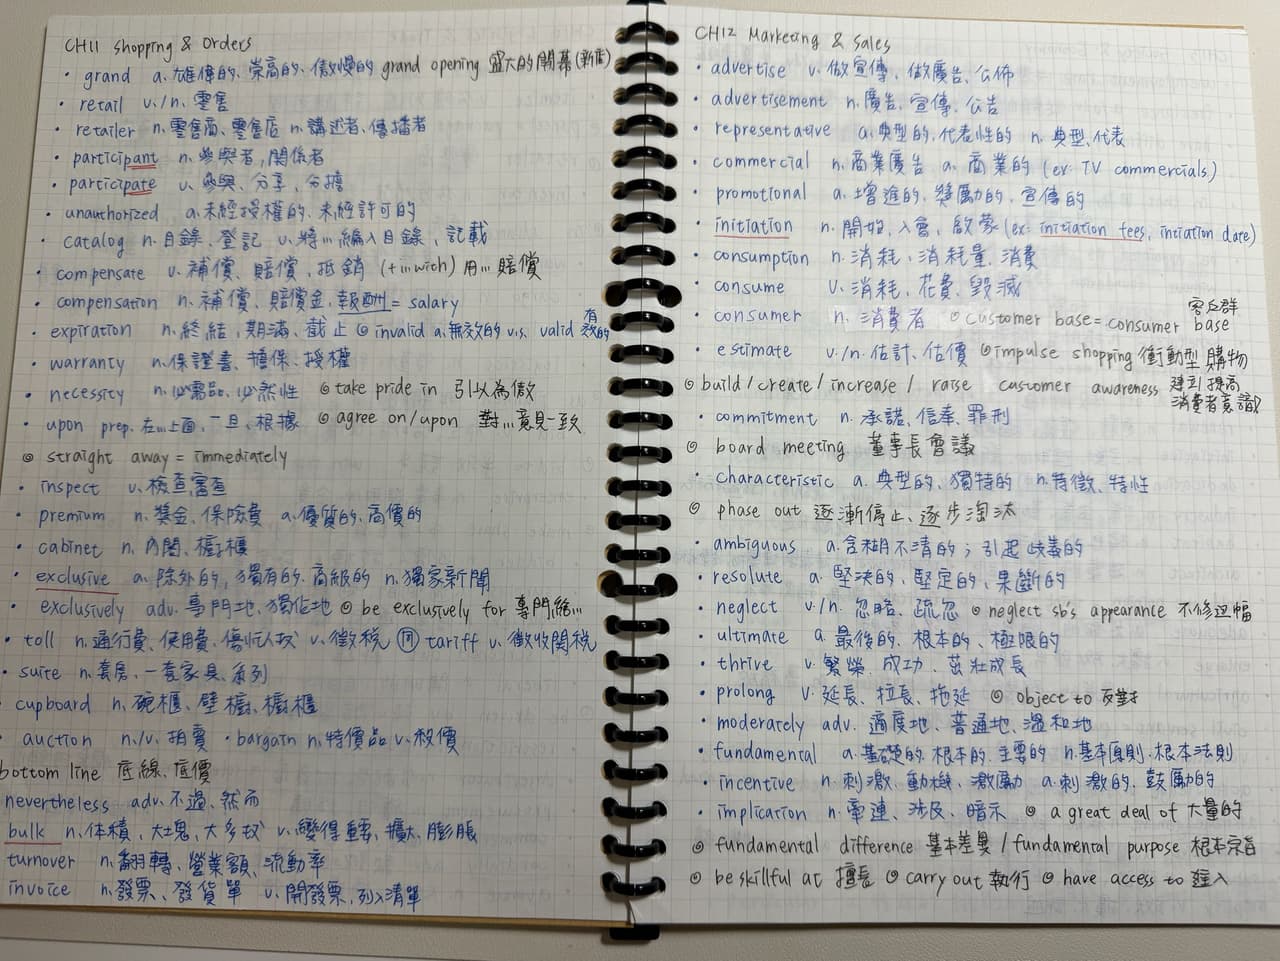 CH11 shopping & orders
• grand a. 雄偉的、崇高的、傲慢的 grand opening 盛大的開幕(新店)
• retail v./n. 零售
• retailer n. 零售商、零售店 n. 講述者、傳播者
• participant n. 參與者, 關係者
• participate v. 參與、分享、分擔
unauthorized a. 未經授權的、未經許可的
• catalog n. 目錄、登記 v. 將…編入目錄、記載
• compensate v. 補償、賠償、抵銷 (+…with) 用…賠償
• compensation n. 補償、賠償金、報酬 = salary
• expiration n. 終結、期滿、截止 ◎ invalid a. 無效的 v.s. valid 有效的
• warranty n. 保證書、擔保、授權
• necessity n. 必需品、必然性 ◎ take pride in 引以為傲
• upon prep. 在…上面、一旦、根據 ◎ agree on/upon 對…意見一致
◎ straight away = immediately
• inspect v. 檢查審查
• premium n. 獎金、保險費 a. 優質的、高價的
• cabinet n. 內閣、櫥櫃
• exclusive a. 除外的, 獨有的、高級的 n. 獨家新聞
• exclusively adv. 專門地、獨佔地 ◎ be exclusively for 專門給…
• toll n. 通行費、使用費、傷忙人數 v. 徵稅 同 tariff v. 徵收關稅
• suite n. 套房、一套家具、系列
• cupboard n. 碗櫃、壁櫥、櫥櫃
• auction n./v. 拍賣 • bargain n. 特價品 v. 殺價
bottom line 底線、底價
nevertheless adv. 不過、然而
bulk n. 体積、大塊、大多數 v. 變得重要、擴大、膨脹
turnover n. 翻轉、營業額、流動率
invoice n. 發票、發貨單 v. 開發票, 列入清單
CH12 Marketing & Sales
• advertise v. 做宣傳、做廣告、公佈
• advertisement n. 廣告、宣傳、公告
• representative a. 典型的、代表性的 n. 典型、代表
• commercial n. 商業廣告 a. 商業的 (ex: TV commercials)
• promotional a. 增進的、獎勵的、宣傳的
• initiation n. 開始、入會、啟蒙 (ex: initiation fees, intiation date)
• consumption n. 消耗、消耗量、消費
• consume v. 消耗、花費、毀滅
• consumer n. 消費者 ◎ customer base = consumer base 客戶群
• estimate v./n. 估計、估價 ◎ impulse shopping 衝動型購物
◎ build / create / increase / raise customer awareness 建立提高消費者意識
• commitment n. 承諾、信奉、罪刑
◎ board meeting 董事長會議
characteristic a. 典型的、獨特的 n. 特徵、特性
◎ phase out 逐漸停止、逐步淘汰
• ambiguous a. 含糊不清的; 引起歧義的
• resolute a. 堅決的、堅定的、果斷的
• neglect v./n. 忽略、疏忽 ◎ neglect sb's appearance 不修邊幅
• ultimate a. 最後的、根本的、極限的
• thrive v. 繁榮、成功、茁壯成長
• prolong v. 延長、拉長、拖延 ◎ object to 反對
• moderately adv. 適度地、普通地、溫和地
• fundamental a. 基礎的、根本的、主要的 n. 基本原則、根本法則
• incentive n. 刺激、動機、激勵 a. 刺激的、鼓勵的
• implication n. 牽連、涉及、暗示 ◎ a great deal of 大量的
◎ fundamental difference 基本差異 / fundamental purpose 根本宗旨
◎ be skillful at 擅長 ◎ carry out 執行 ◎ have access to 進入